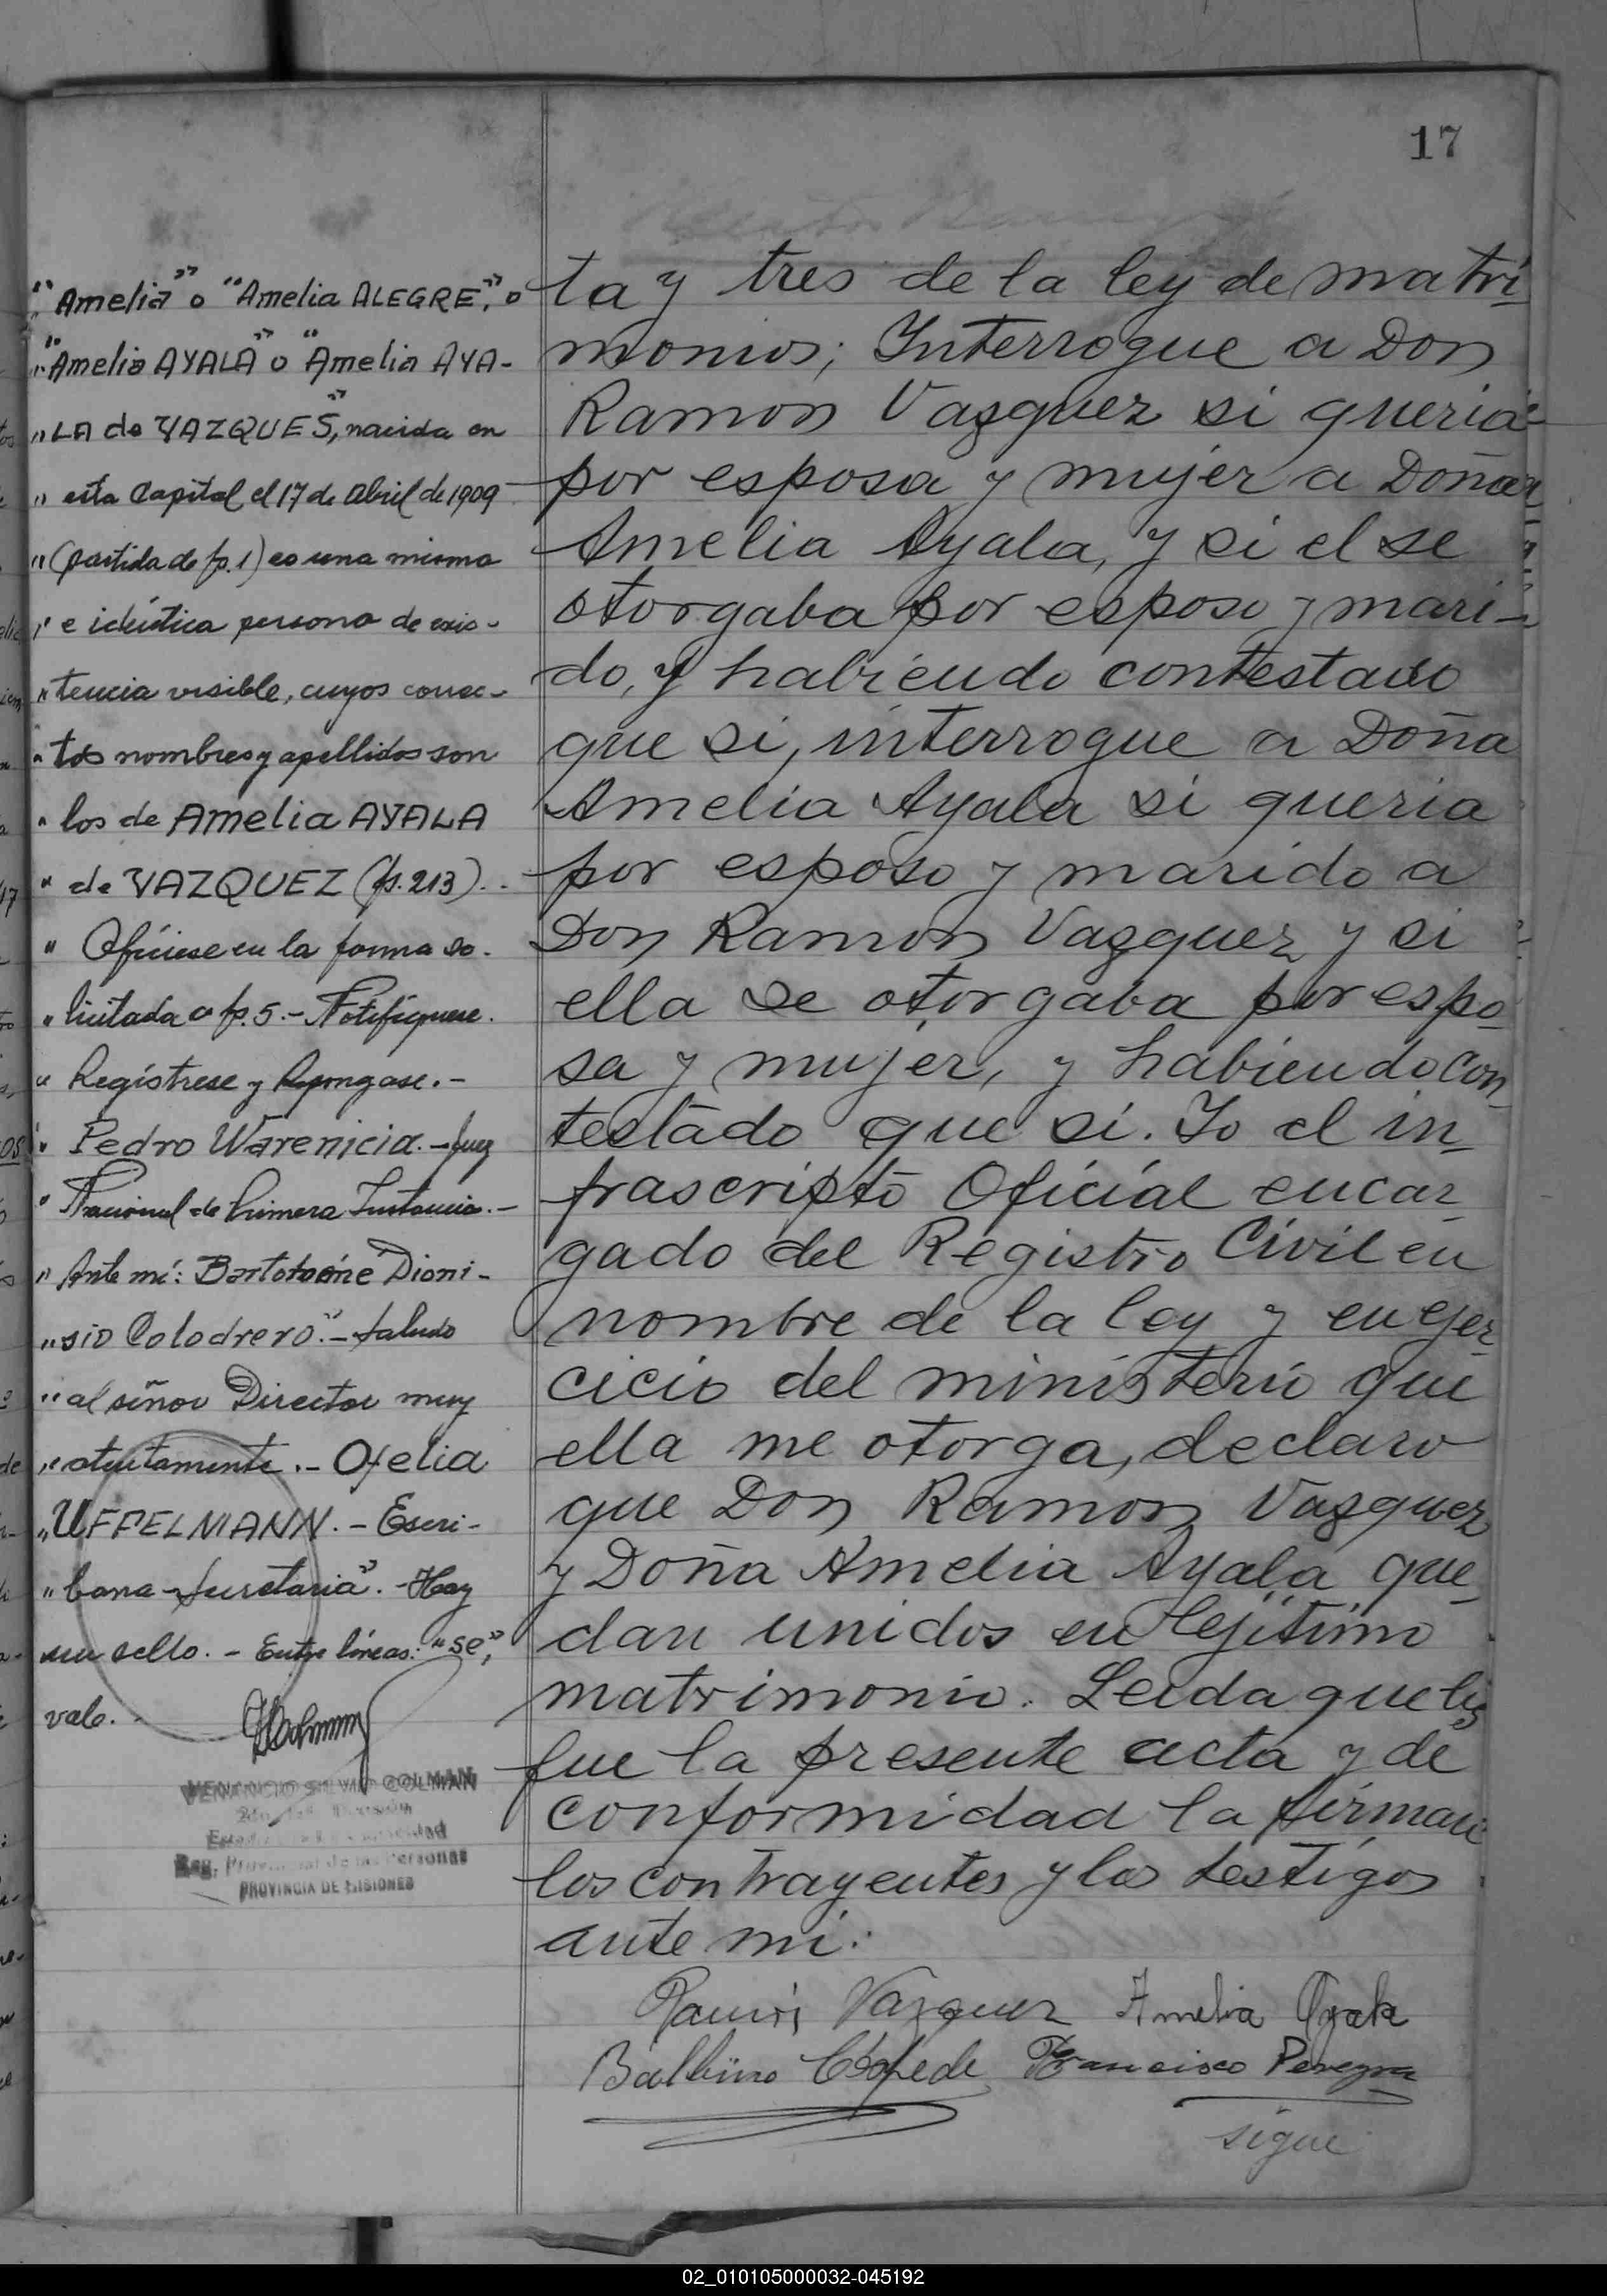 17
"Amelia" o "Amelia ALEGRE", o
"Amelia AYALA" o "Amelia AYA-
"LA de VAZQUES", nacida en
" esta Capital el 17 de Abril de 1909
" (partida de fs. 1) es una misma
" e idéntica persona de exis-
" tencia visible, cuyos correc-
" tos nombres y apellidos son
" los de Amelia AYALA
" de VAZQUEZ (fs. 213).-
" Ofíciese en la forma so-
" licitada a fs. 5.- Notifíquese.
" Regístrese y Repóngase.-
" Pedro Warenicia.- Juez
" Nacional de Primera Instancia.-
" Ante mí: Bartolomé Dioni-
" sio Colodrero".- Saludo
" al señor Director muy
" atentamente.- Ofelia
" UFFELMANN.- Escri-
" bana-Secretaria".- Hay
un sello.- Entre líneas: "se",
vale.
VENANCIO SILVIO COLMAN
Reg. Provincial de las Personas
PROVINCIA DE MISIONES
ta y tres de la ley de matri
monios; Interrogue a Don
Ramon Vazquez si queria
por esposa y mujer a Doña
Amelia Ayala, y si el se
otorgaba por esposo y mari-
do, y habiendo contestado
que si, interrogue a Doña
Amelia Ayala si queria
por esposo y marido a
Don Ramon Vazquez y si
ella se otorgaba por espo
sa y mujer, y habiendo con
testado que si. Yo el in
frascripto Oficial encar
gado del Registro Civil en
nombre de la ley y en ejer
cicio del ministerio que
ella me otorga, declaro
que Don Ramon Vazquez
y Doña Amelia Ayala que
dan unidos en lejitimo
matrimonio. Leida que les
fue la presente acta y de
conformidad la firman
los contrayentes y los testigos
ante mi:
Ramón Vazquez Amelia Ayala
Balbino Francisco
sigue
02_010105000032-045192